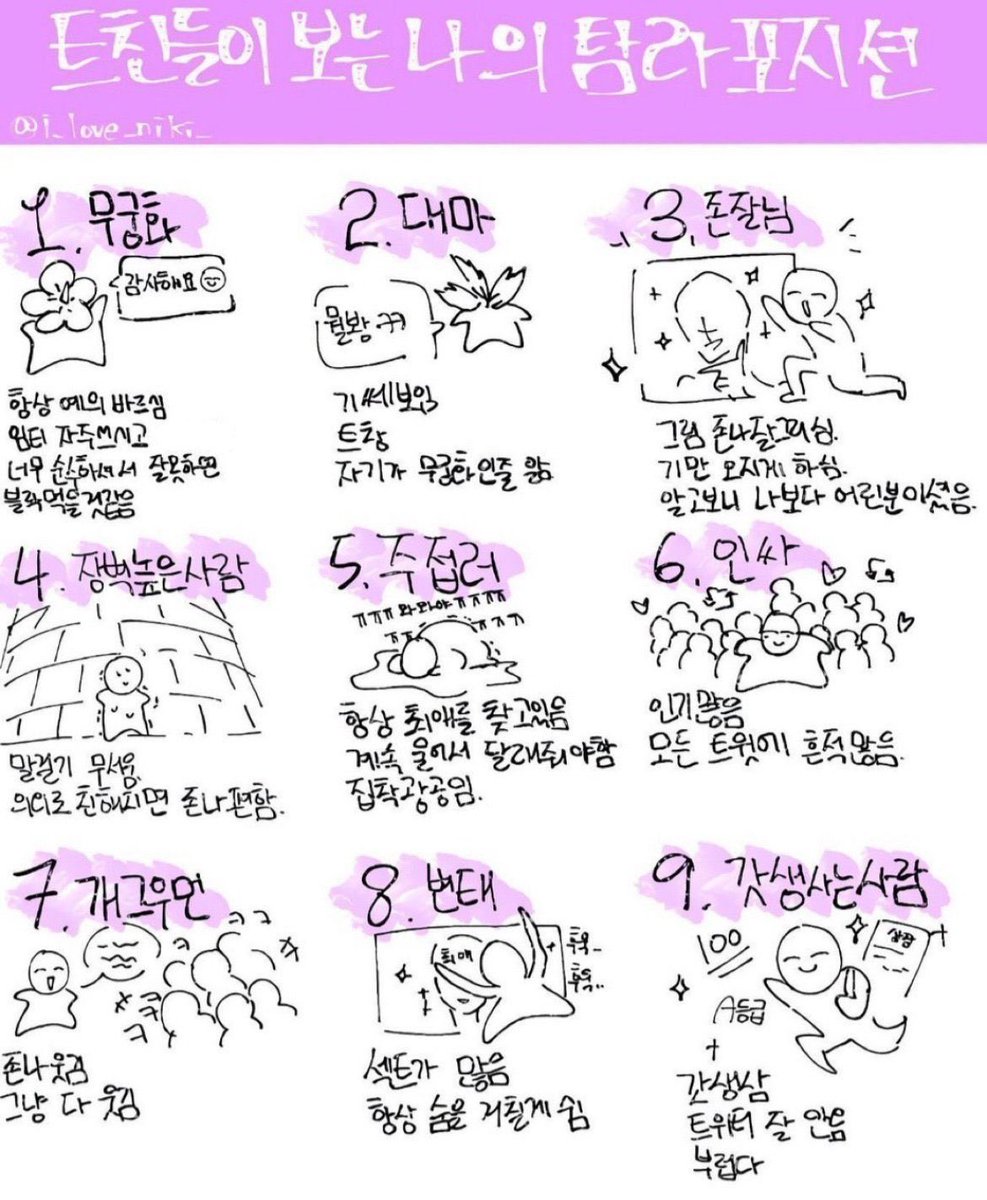 트친들이 보는 나의 탐라 포지션
@i_love_niki_
1. 무궁화
감사해요
항상 예의 바르심
웜톤 자주쓰시고
너무 순수하셔서 잘못하면
블락먹을것같음
2. 대마
뭘봐 ㄲㄲ
기 쎄보임
트창
자기가 무궁화인줄 앎
3. 존잘님
그림 존나잘그리심.
기만 오지게 하심.
알고보니 나보다 어린분이셨음.
4. 장벽높은사람
말걸기 무서움.
의외로 친해지면 존나편함.
5. 주접러
ㅠㅠㅠ 와 ㅠㅠㅠㅠ
ㅠㅠ ㅠㅠㅠ
항상 최애를 찾고있음
계속 울어서 달래줘야함
집착광공임.
6. 인싸
인기많음
모든 트윗에 흔적많음.
7. 개그우먼
ㅋㅋ
ㅋㅋ
ㅋㅋ
ㅋ
존나웃김
그냥 다 웃김
8. 변태
최애
후욱..
후욱..
섹트가 많음
항상 숨을 거칠게 쉼
9. 갓생사는사람
100
상장
A등급
+
갓생삶
트위터 잘 안옴
부럽다